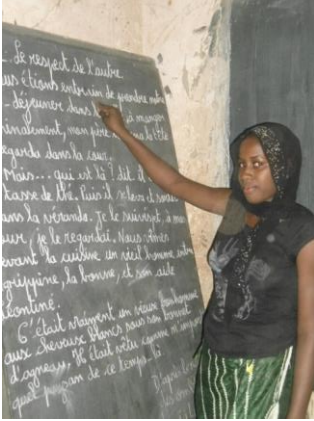 - Le respect de l'autre
us étions entrain de prendre notre
- déjeuner dans à manger
rendalement, mon père la tête
egarda dans la cour.
Mais... qui est là ! dit il
tasse de thé. Puis il se leva et
ans la veranda. Je le suivis, à mon
our, je le regardai. Nous vîmes
evant la cuisine un vieil homme, entre
grippine, la bonne, et son aide
éontiné.
C'était vraiment un vieux bonhomme
aux cheveux blancs sous son bonnet
d'agneau. Il était vêtu comme n'importe
quel paysan de ce temps-là
D'après